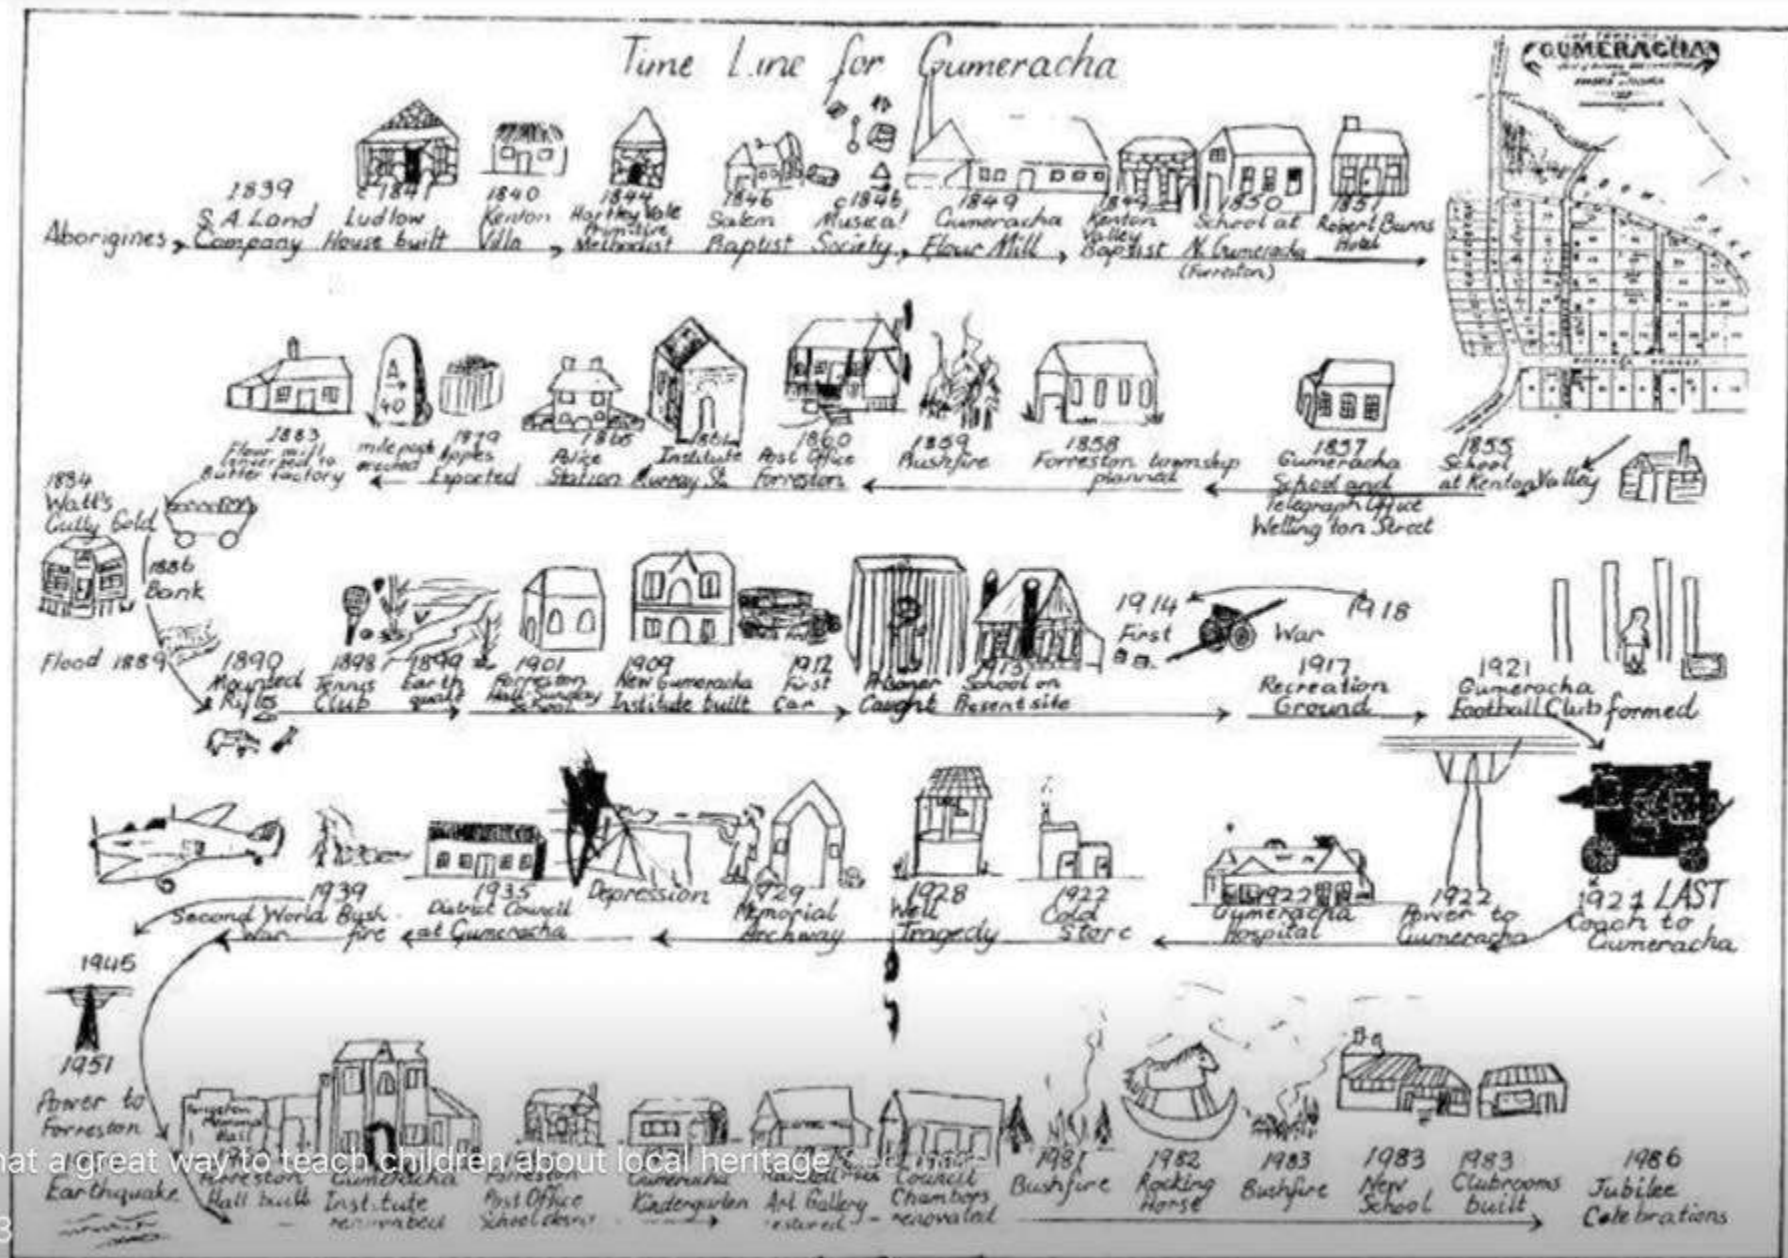 Time Line for Gumeracha
GUMERACHA
Aborigines
1839
S.A. Land
Company
c 1841
Ludlow
House built
1840
Kenton
Villa
1844
Hartley Vale
Primitive
Methodist
1846
Salem
Baptist
c1846
Musical
Society
1849
Gumeracha
Flour Mill
1849
Kenton
Valley
Baptist
1850
School at
N. Gumeracha
(Forreston)
1851
Robert Burns
Hotel
1855
School
at Kenton Valley
1857
Gumeracha
School and
Telegraph Office
Wellington Street
1858
Forreston township
planned
1859
Bushfire
1860
Post Office
Forreston
Institute
Murray St
1865
Police
Station
1879
Apples
Exported
A
40
mile post
erected
1883
Flour mill
converted to
Butter factory
1884
Watt's
Gully Gold
1886
Bank
Flood 1889
1890
Mounted
Rifles
1898
Tennis
Club
1899
Earth
quake
1901
Forreston
Hall-Sunday
School
1909
New Gumeracha
Institute built
1912
First
Car
Prisoner
Caught
1913
School on
Present site
1914
First
War
1918
1917
Recreation
Ground
1921
Gumeracha
Football Club formed
1921 LAST
Coach to
Gumeracha
1922
Power to
Gumeracha
1922
Gumeracha
Hospital
1922
Cold
Store
1928
Well
Tragedy
1929
Memorial
Archway
Depression
1935
District Council
at Gumeracha
1939
Bush
fire
Second World
War
1945
1951
Power to
Forreston
Earthquake
Forreston
Memorial
Hall
Forreston
Hall built
Gumeracha
Institute
Forreston
Post Office
School
Gumeracha
Kindergarten
Art Gallery
restored
Council
Chambers
renovated
1981
Bushfire
1982
Rocking
Horse
1983
Bushfire
1983
New
School
1983
Clubrooms
built
1986
Jubilee
Celebrations
a great way to teach children about local heritage